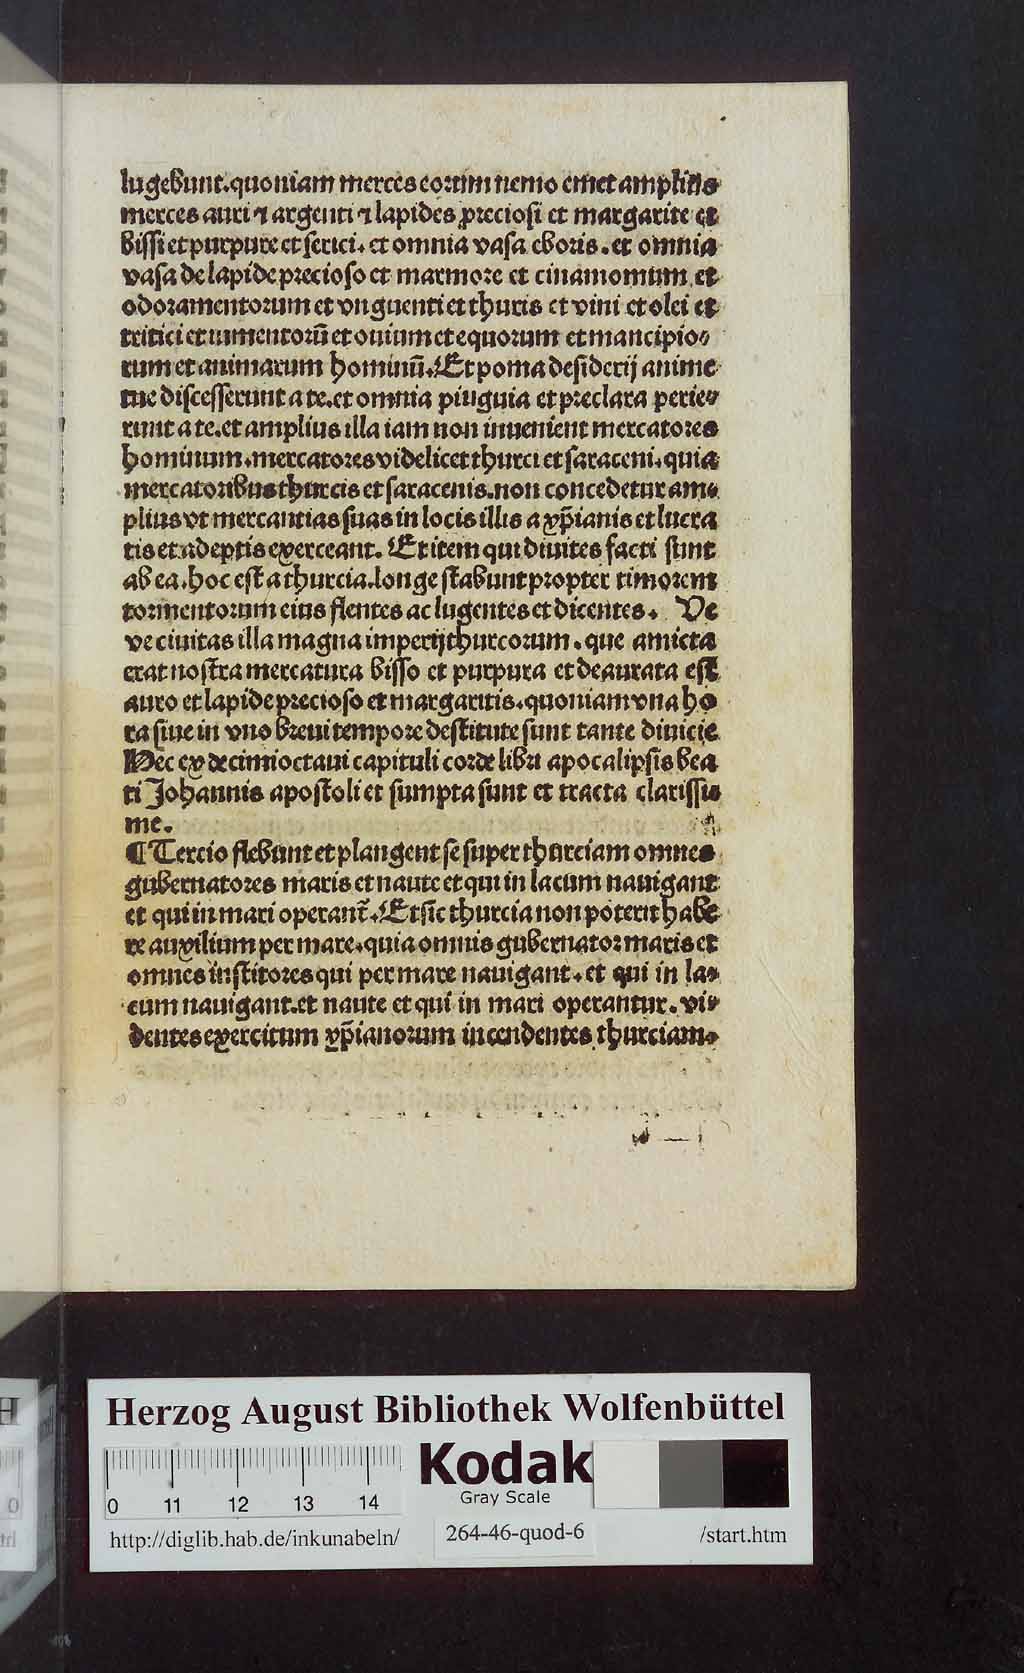 lugebunt.quoniam merces eorum nemo emet amplius
merces auri ⁊ argenti ⁊ lapides preciosi et margarite et
bissi et purpure et serici. et omnia vasa eboris. et omnia
vasa de lapide precioso et marmore et cinamomum et
odoramentorum et vnguenti et thuris et vini et olei et
tritici et iumentorū et ouium et equorum et mancipio⸗
rum et animarum hominū. Et poma desiderij anime
tue discesserunt a te. et omnia pinguia et preclara perie⸗
runt a te. et amplius illa iam non inuenient mercatores
hominum. mercatores videlicet thurci et saraceni. quia
mercatoribus thurcis et saracenis. non concedetur am⸗
plius vt mercantias suas in locis illis a xp̄ianis et lucra
tis et adeptis exerceant. Et item qui diuites facti sunt
ab ea. hoc est a thurcia. longe stabunt propter timorem
tormentorum eius flentes ac lugentes et dicentes. Ve
ve ciuitas illa magna imperij thurcorum. que amicta
erat nostra mercatura bisso et purpura et deaurata est
auro et lapide precioso et margaritis. quoniam vna ho
ra siue in vno breui tempore destitute sunt tante diuicie
Hec ex decimioctaui capituli corde libri apocalipsis bea
ti Johannis apostoli et sumpta sunt et tracta clarissi⸗
me.
¶ Tercio flebunt et plangent se super thurciam omnes
gubernatores maris et naute et qui in lacum nauigant
et qui in mari operant̄. Et sic thurcia non poterit habe
re auxilium per mare. quia omnis gubernator maris et
omnes institores qui per mare nauigant. et qui in la⸗
cum nauigant. et naute et qui in mari operantur. vi⸗
dentes exercitum xp̄ianorum incendentes thurciam.
Herzog August Bibliothek Wolfenbüttel
Kodak
Gray Scale
0 11 12 13 14
http://diglib.hab.de/inkunabeln/ 264-46-quod-6 /start.htm